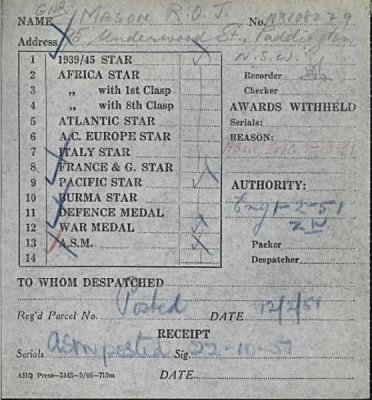 GNR
NAME MASON R.O.J. No. NX108279
Address 75 Underwood St., Paddington
N.S.W.
1 1939/45 STAR
2 AFRICA STAR
3 ,, with 1st Clasp
4 ,, with 8th Clasp
5 ATLANTIC STAR
6 A.C. EUROPE STAR
7 ITALY STAR
8 FRANCE & G. STAR
9 PACIFIC STAR
10 BURMA STAR
11 DEFENCE MEDAL
12 WAR MEDAL
13 A.S.M.
14
Recorder
Checker
AWARDS WITHHELD
Serials:
REASON:
AUTHORITY:
1-2-51
Packer
Despatcher
TO WHOM DESPATCHED
Posted
Reg'd Parcel No. DATE 12/2/51
RECEIPT
Serials ASM posted Sig. 22-10-51
AHQ Press—5443—9/05—710m DATE